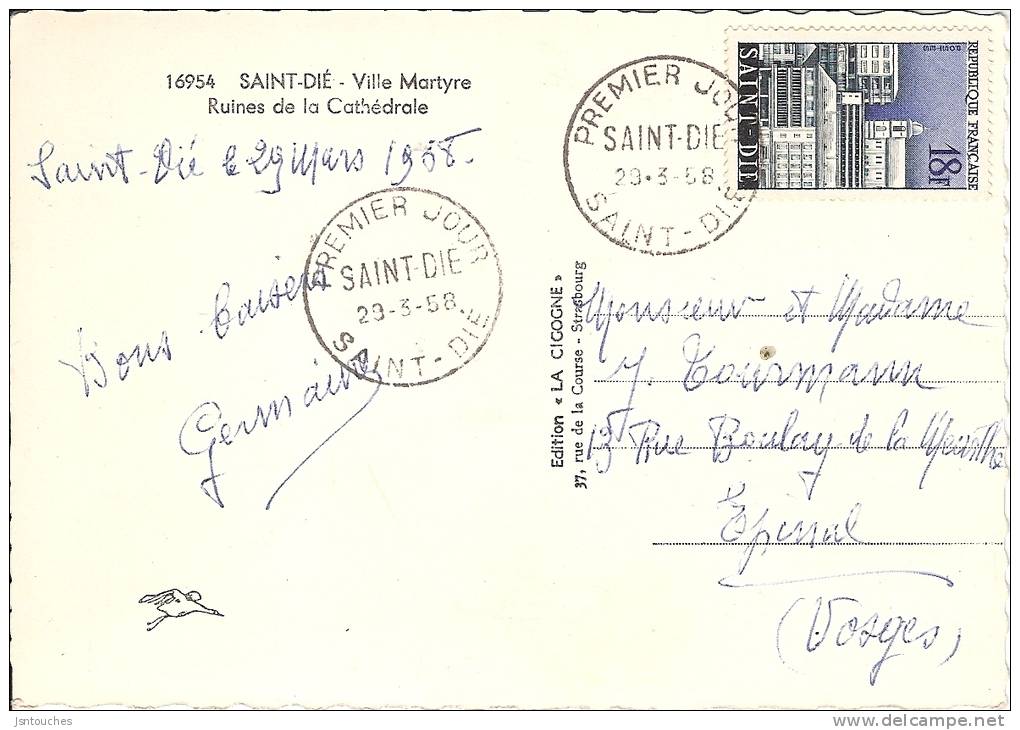 16954 SAINT-DIÉ - Ville Martyre
Ruines de la Cathédrale
Saint-Dié le 29 Mars 1958.
PREMIER JOUR
SAINT-DIE
29-3-58
SAINT-DIE
Bons baisers
Germaine
PREMIER JOUR
SAINT-DIE
29-3-58
SAINT-DIE
REPUBLIQUE FRANÇAISE
18F
SAINT-DIE
Edition « LA CIGOGNE »
37, rue de la Course - Strasbourg
Monsieur et Madame
J. Tourmann
13 Rue Boulay de la Meurthe
Epinal
(Vosges)
jsntouches
delcampe.net